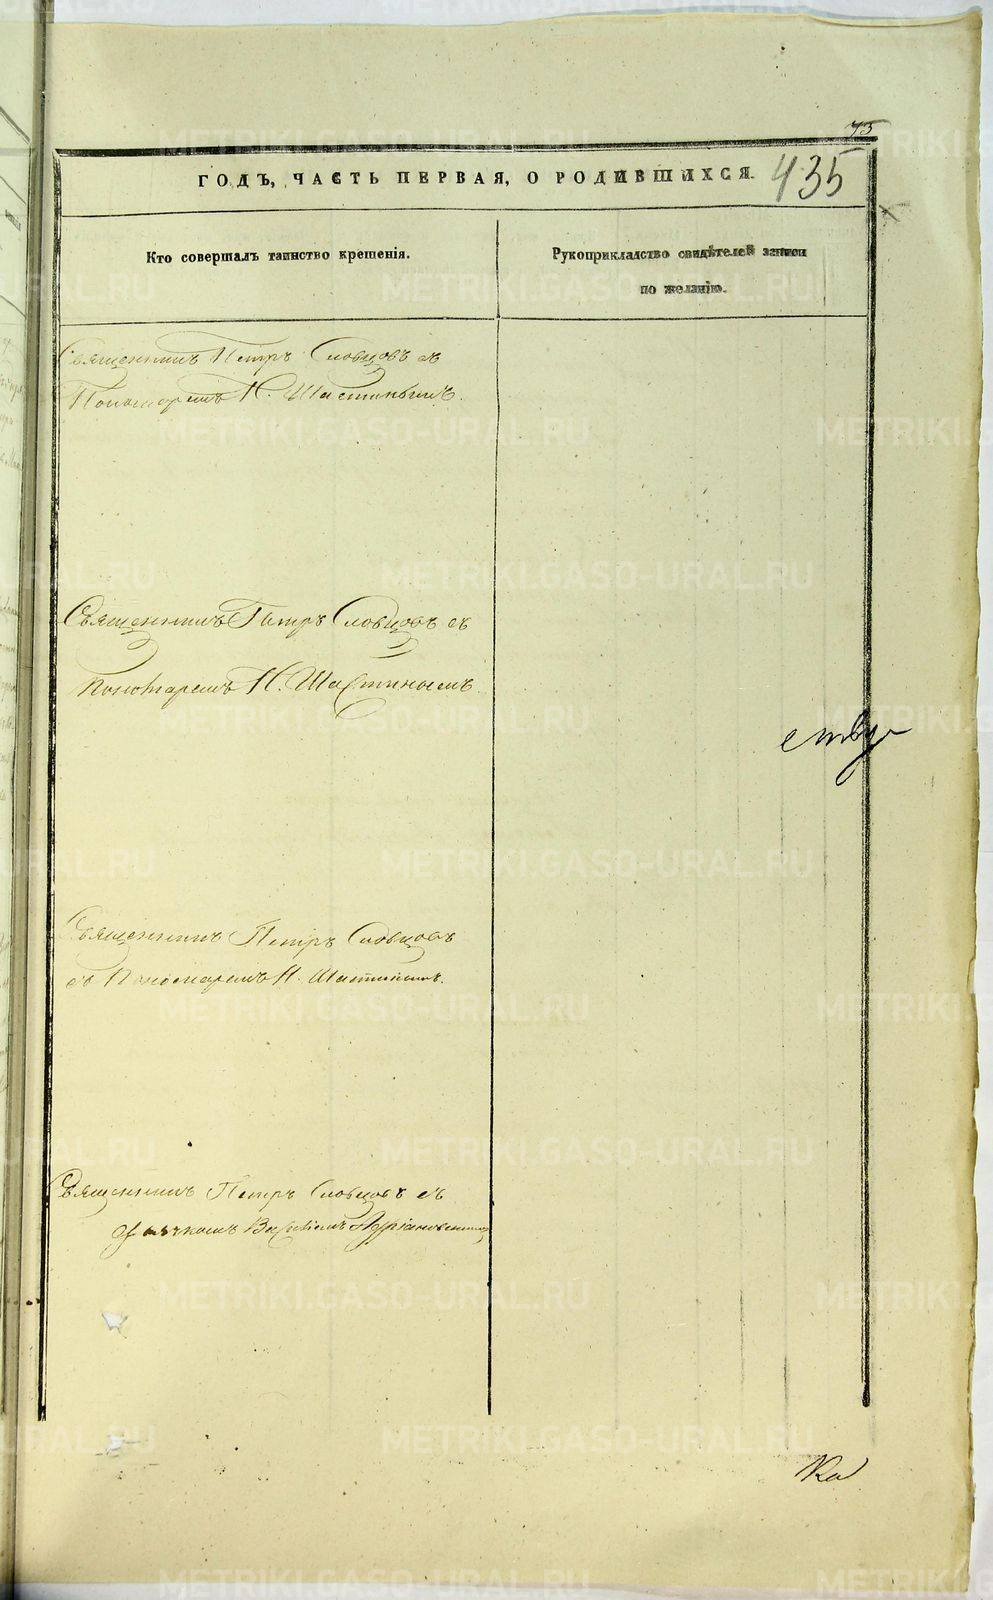 73
ГОДЪ, ЧАСТЬ ПЕРВАЯ, О РОДИВШИХСЯ.
435
Кто совершалъ таинство крещенія.
Рукоприкладство свидѣтелей записи
по желанію.
Священникъ Петръ Словцовъ съ
Пономаремъ Н. Шастинымъ.
Священникъ Петръ Словцовъ съ
Пономаремъ Н. Шастинымъ.
ству
Священникъ Петръ Словцовъ
съ Пономаремъ Н. Шастинымъ.
Священникъ Петръ Словцовъ съ
Дьячкомъ
METRIKI.GASO-URAL.RU